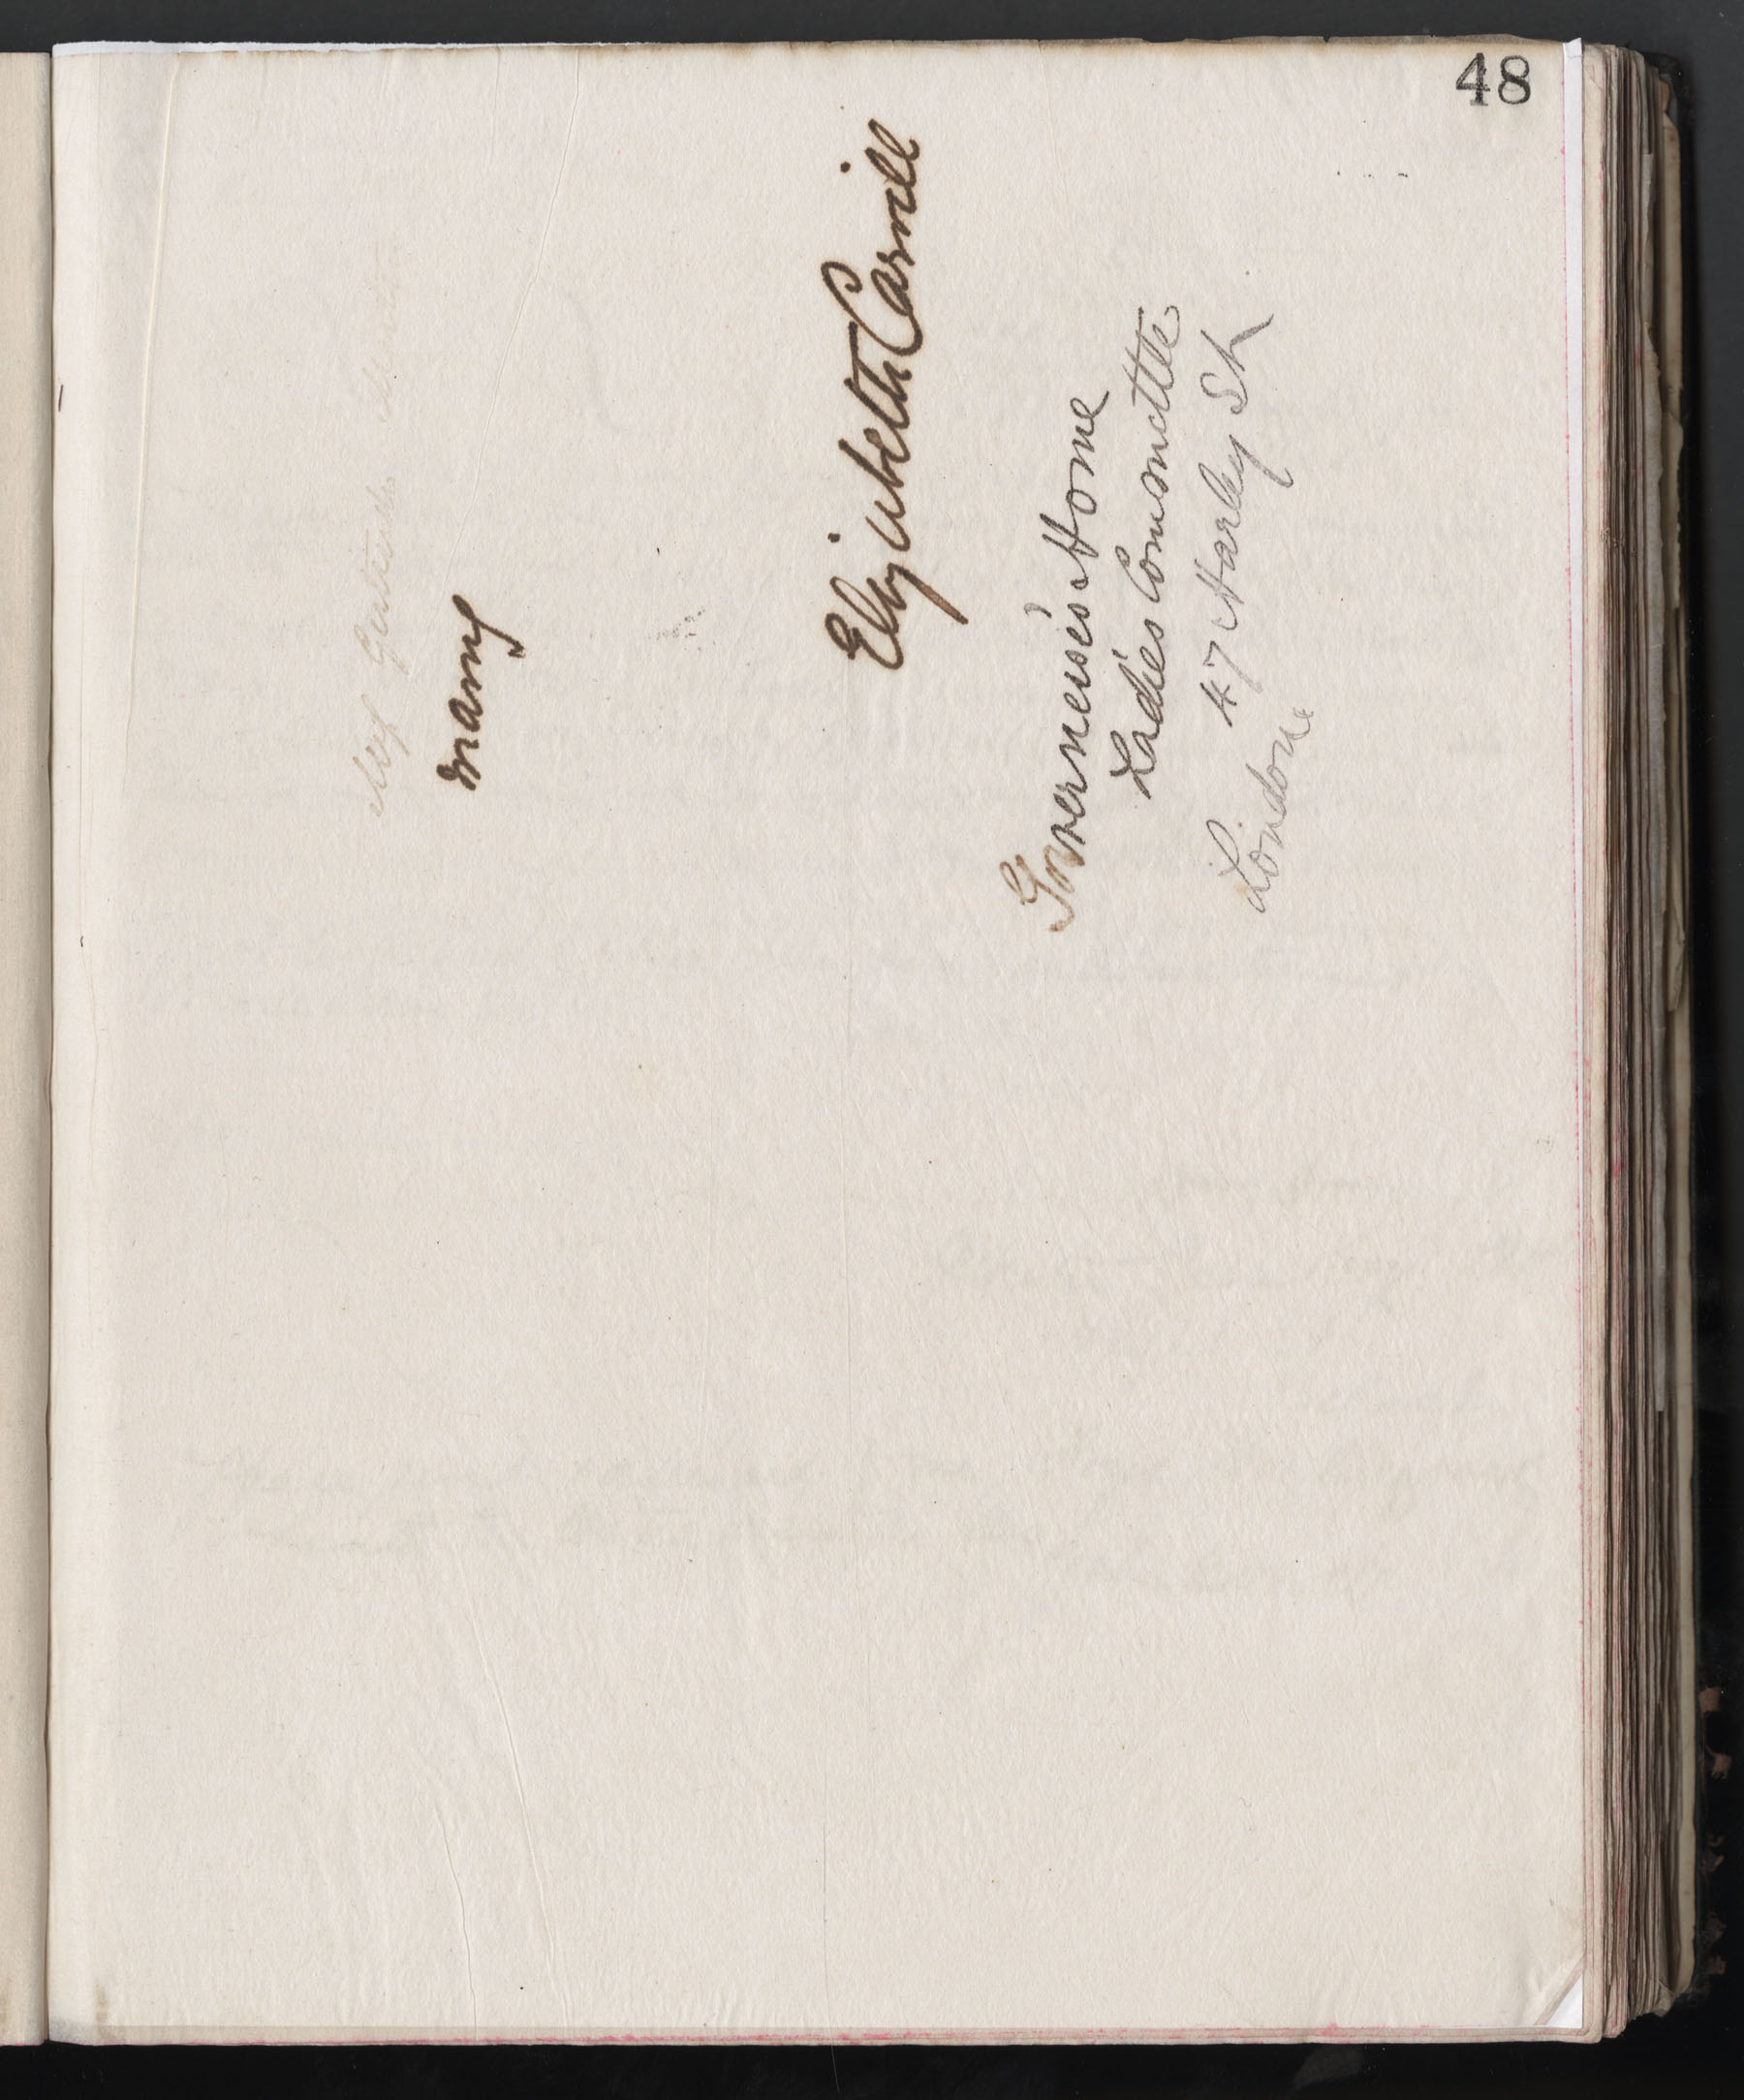 48
many
Elizabeth Carvill
Governeses' Home
Ladies Committee
47 Harley St
London